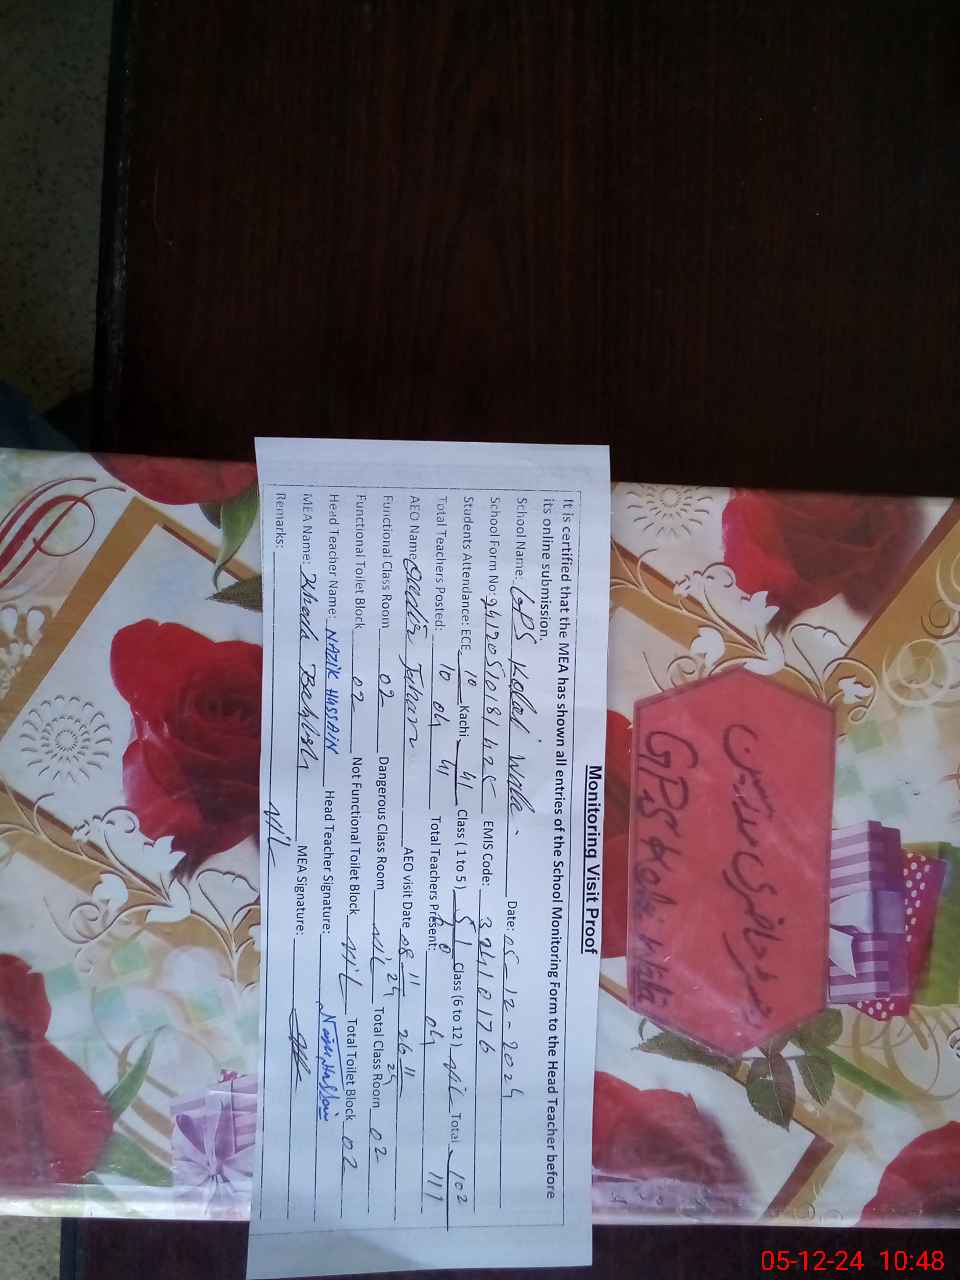 Monitoring Visit Proof
It is certified that the MEA has shown all entries of the School Monitoring Form to the Head Teacher before
its online submission.
School Name: GPS Kotal Wala. Date: 05-12-2024
School Form No: EMIS Code: 32410176
Students Attendance: ECE 10 Kachi 41 Class (1 to 5) 51 Class (6 to 12) Nil Total 102
10 41 60 111
Total Teachers Posted: 04 Total Teachers Present: 04
AEO Name AEO visit Date 08 11 24 26 11 24
Functional Class Room 02 Dangerous Class Room Nil Total Class Room 02
Functional Toilet Block 02 Not Functional Toilet Block Nil Total Toilet Block 02
Head Teacher Name: NAZIK HUSSAIN Head Teacher Signature:
MEA Name: MEA Signature:
Remarks: Nil
GPS Wala
05-12-24 10:48